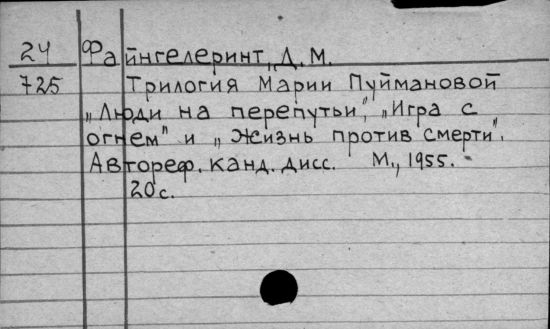 24 Файнгелеринт, Д.М.
725 Трилогия Марии Пуймановой
„Люди на перепутьи", „Игра с
огнем" и „Жизнь против смерти".
Автореф. канд. дисс. М., 1955.
20 с.